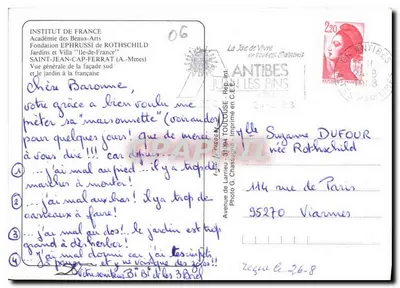 INSTITUT DE FRANCE
Académie des Beaux-Arts
Fondation EPHRUSSI de ROTHSCHILD
Jardins et Villa "Ile-de-France"
SAINT-JEAN-CAP-FERRAT (A.-Mmes)
Vue générale de la façade sud
et le jardin à la française
06
La Joie de Vivre
ANTIBES
JUAN LES PINS
2,20
ANTIBES
Chère Baronne,
votre grâce a bien voulu me
prêter sa "maisonnette"
que de merci
à vous dire !!! car
① ... j'ai mal au pied... il y a trop de
marches à monter!
② ... j'ai mal aux bras! il y a trop de
carreaux à faire!
③ ... j'ai mal au dos!.. le jardin est trop
grand à désherber!
④ j'ai mal dormi car j'ai les impôts
à payer et
Avenue de Larrieu - 31094 TOULOUSE
Photo G. Imprimé en C.E.E.
Mlle Suzanne DUFOUR
née Rothschild
114 rue de Paris
95270 Viarmes
reçue le 26-8